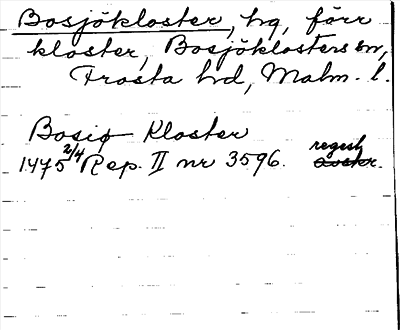 Bosjökloster, hg, förr
kloster, Bosjöklosters sn,
Frosta hd, Malm. l.
Bosiø Kloster
1475 2/4 Rep. II nr 3596. regest